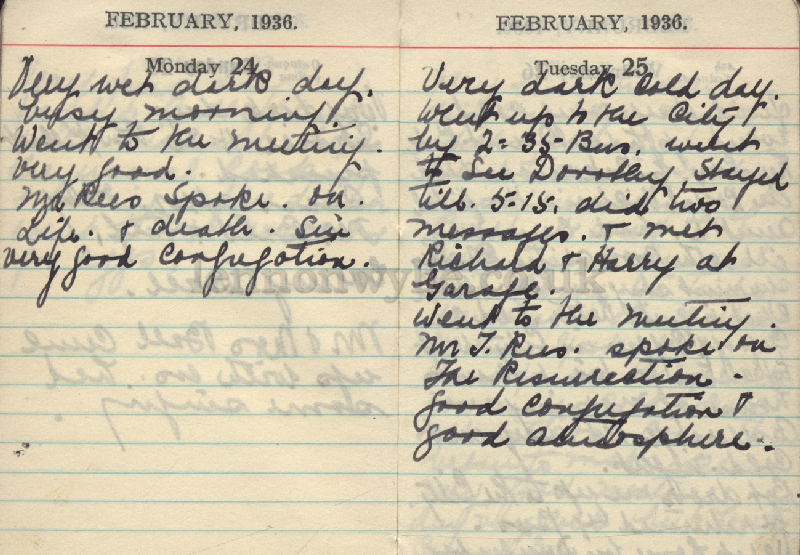 FEBRUARY, 1936.
Monday 24
Very wet dark day.
busy morning.
Went to the meeting.
very good.
Mr Rees Spoke. on.
Life. & death. Sin
very good congregation.
FEBRUARY, 1936.
Tuesday 25
Very dark Cold day.
Went up to the City
by 2-35 Bus. went
to See Dorothy Stayed
till. 5-15. did two
messages. & met
Richard & Harry at
Garage.
Went to the meeting.
Mr T. Rees. spoke on
The Resurrection -
good congregation &
good atmosphere.